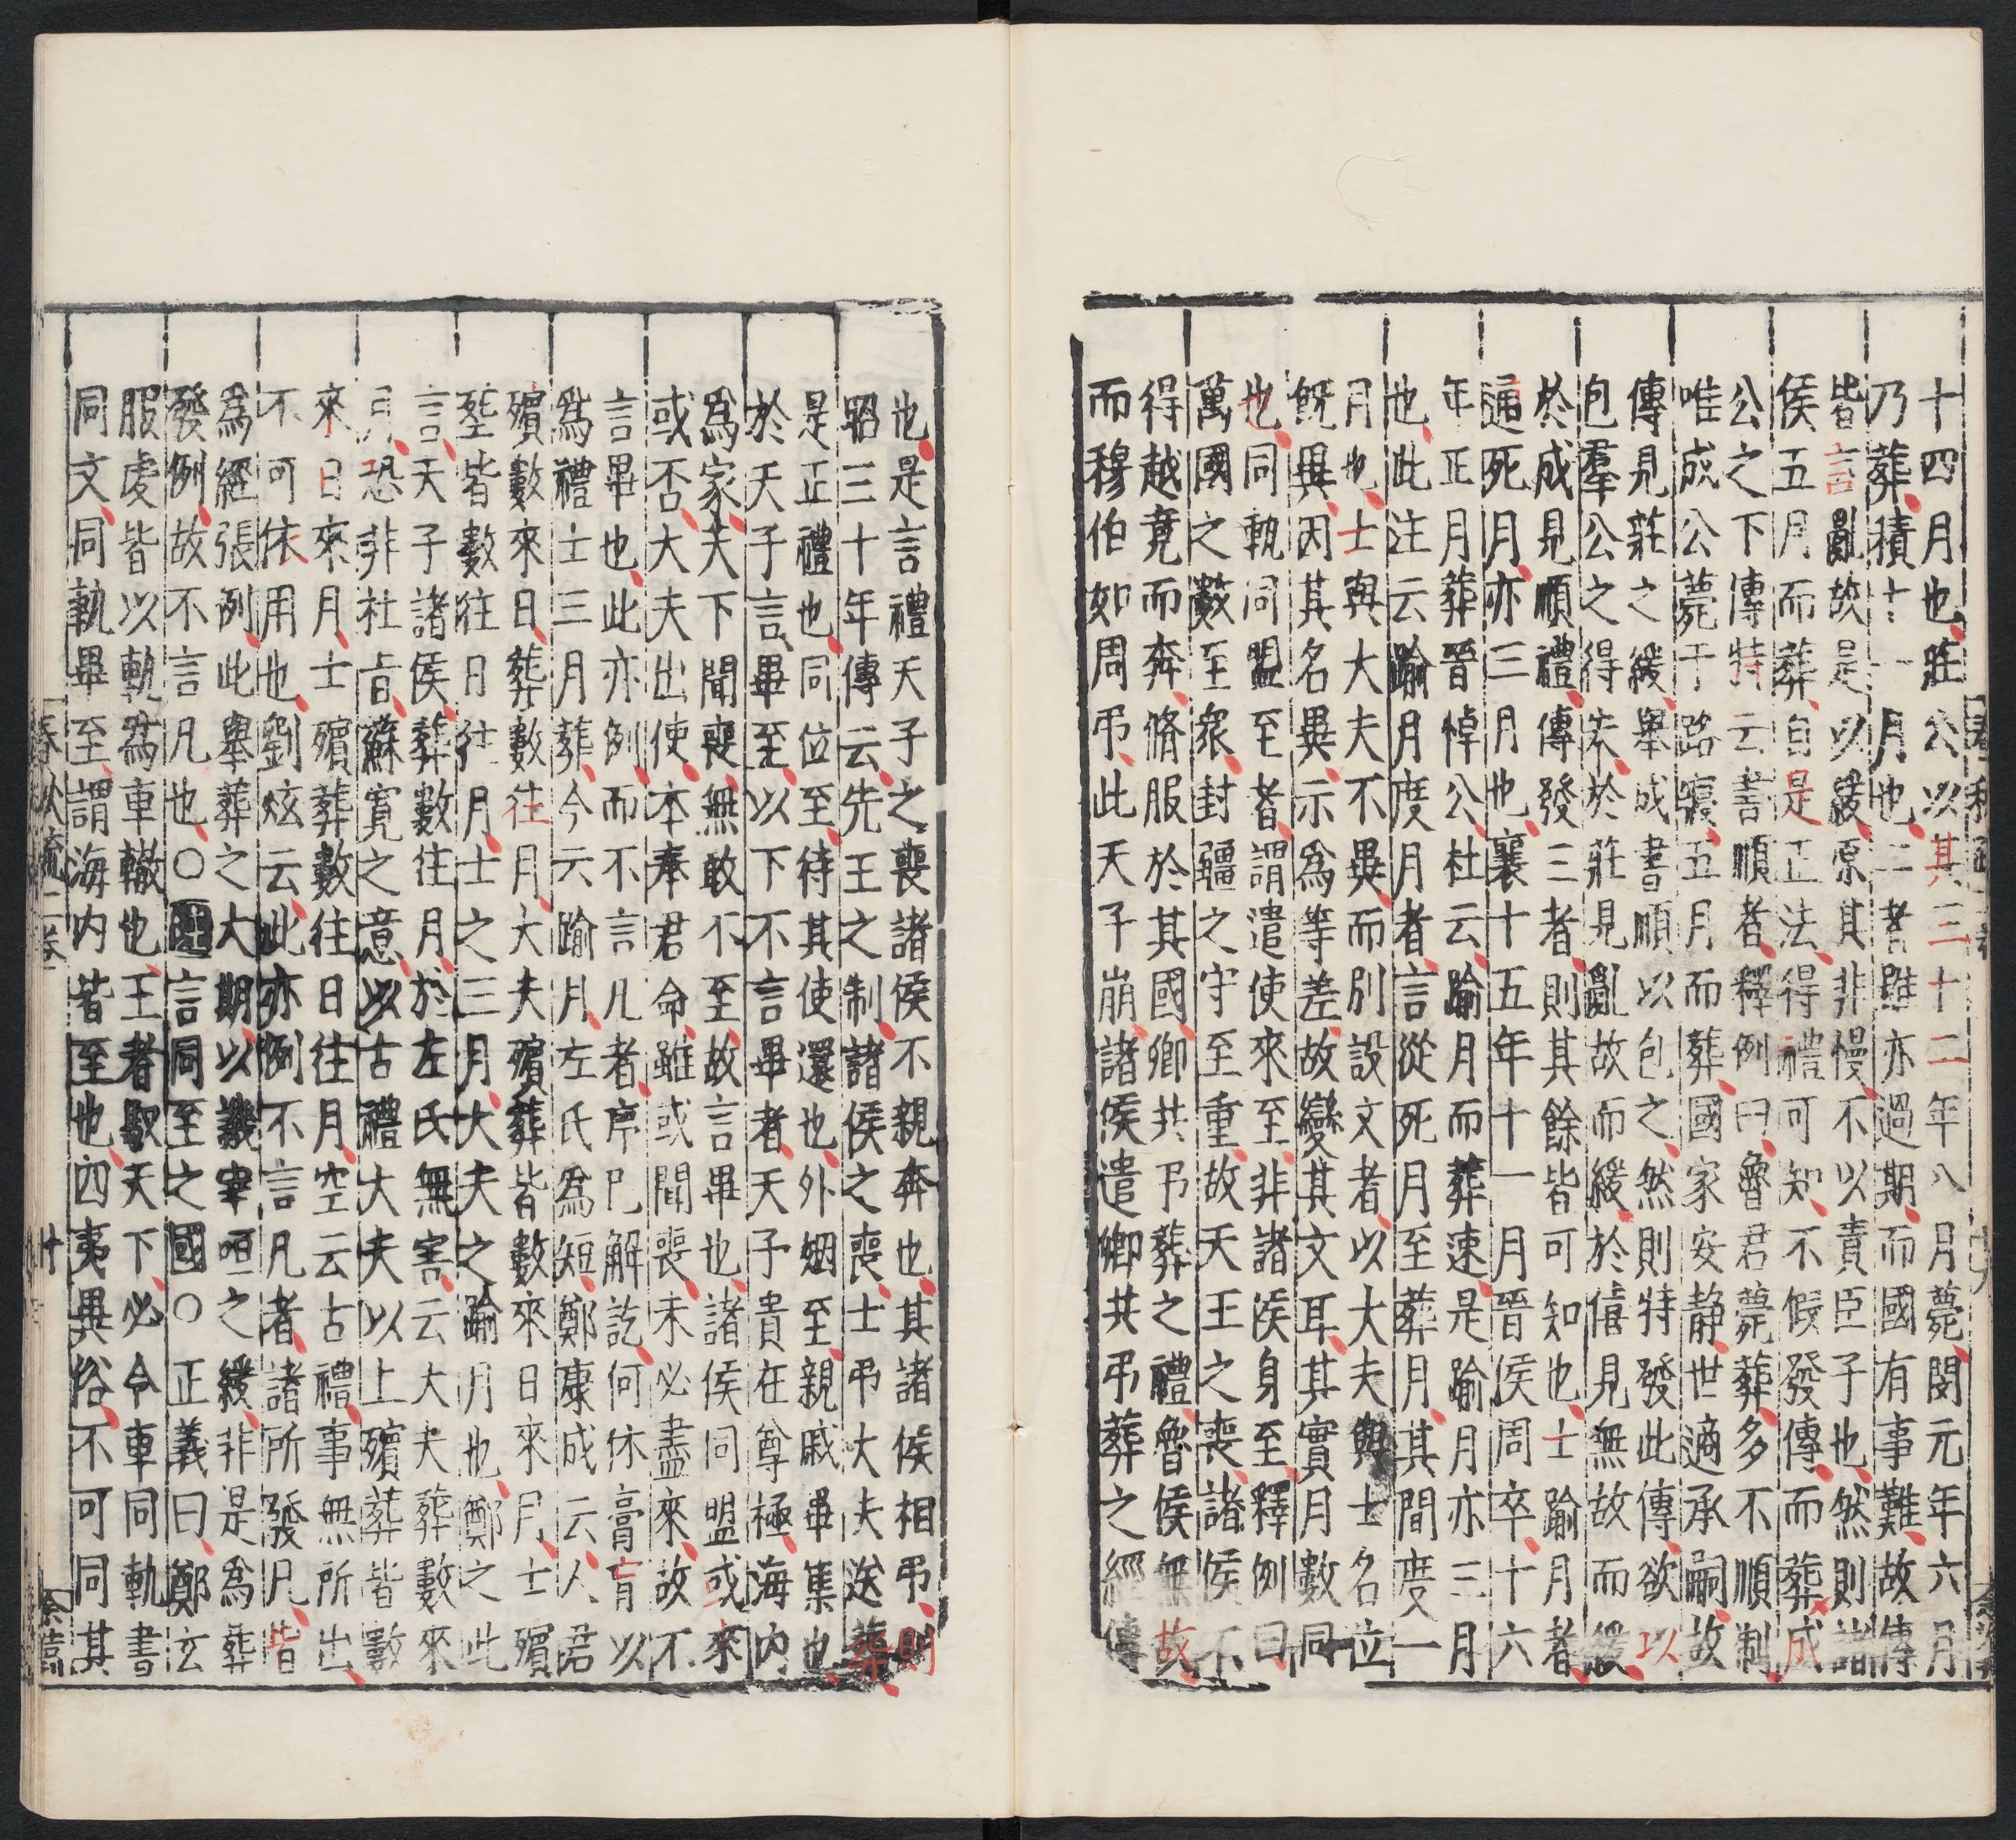 十四月也莊公以其三十二年八月薨閔元年六月
乃葬積十一月也二者雖亦過期而國有事難故傳
皆言亂故是以緩原其非慢不以責臣子也然則諸
侯五月而葬自是正法得禮可知不假發傳而葬成
公之下傳特云書順者釋例曰魯君薨葬多不順制
唯成公薨于路寢五月而葬國家安靜世適承嗣故
傳見莊之緩舉成書順以包之然則特發此傳欲以
包羣公之得失於莊見亂故而緩於僖見無故而緩
於成見順禮傳發三者則其餘皆可知也士踰月者
通死月亦三月也襄十五年十一月晉侯周卒十六
年正月葬晉悼公杜云踰月而葬速是踰月亦三月
也此注云踰月度月者言從死月至葬月其間度一
月也士與大夫不異而別設文者以大夫與士名位
既異因其名異示為等差故變其文耳其實月數同
也同軌同盟至者謂遣使來至非諸侯身至釋例曰
萬國之數至衆封疆之守至重故天王之喪諸侯不
得越竟而奔脩服於其國卿共弔葬之禮魯侯無故
而穆伯如周弔此天子崩諸侯遣卿共弔葬之經傳
也是言禮天子之喪諸侯不親奔也其諸侯相弔則
昭三十年傳云先王之制諸侯之喪士弔大夫送葬
是正禮也同位至待其使還也外姻至親戚畢集也
於天子言畢至以下不言畢者天子貴在尊極海内
爲家夫下聞喪無敢不至故言畢也諸侯同盟或來
或否大夫出使本奉君命雖或聞喪未必盡來故不
言畢也此亦例而不言凡者序已解訖何休膏肓以
爲禮士三月葬今云踰月左氏爲短鄭康成云人君
殯數來日葬數往月大夫殯葬皆數來日來月士殯
塟皆數往日往月士之三月大夫之踰月也鄭之此
言天子諸侯葬數往月於左氏無害云大夫葬數來
月恐非社旨蘇寛之意以古禮大夫以上殯葬皆數
來日來月士殯葬數往日往月空云古禮事無所出
不可依用也劉炫云此亦例不言凡者諸所發凡皆
爲經張例此舉葬之大期以譏宰咺之緩非是爲葬
發例故不言凡也○言同至之國○正義曰鄭玄
服虔皆以軌爲車轍也王者馭天下必令車同軌書
同文同軌畢至謂海内皆至也四夷異俗不可同其
春秋疏二卷
廿